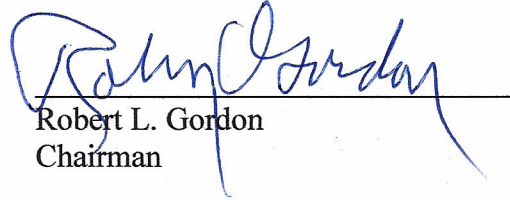 Robert L. Gordon
Robert L. Gordon
Chairman